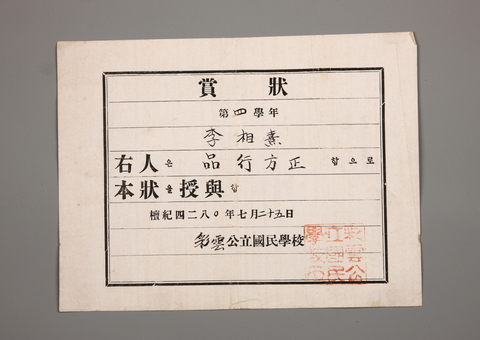 賞狀
第四學年
李相熹
右人은 品行方正 함으로
本狀을 授與함
檀紀四二八〇年七月二十五日
彩雲公立國民學校